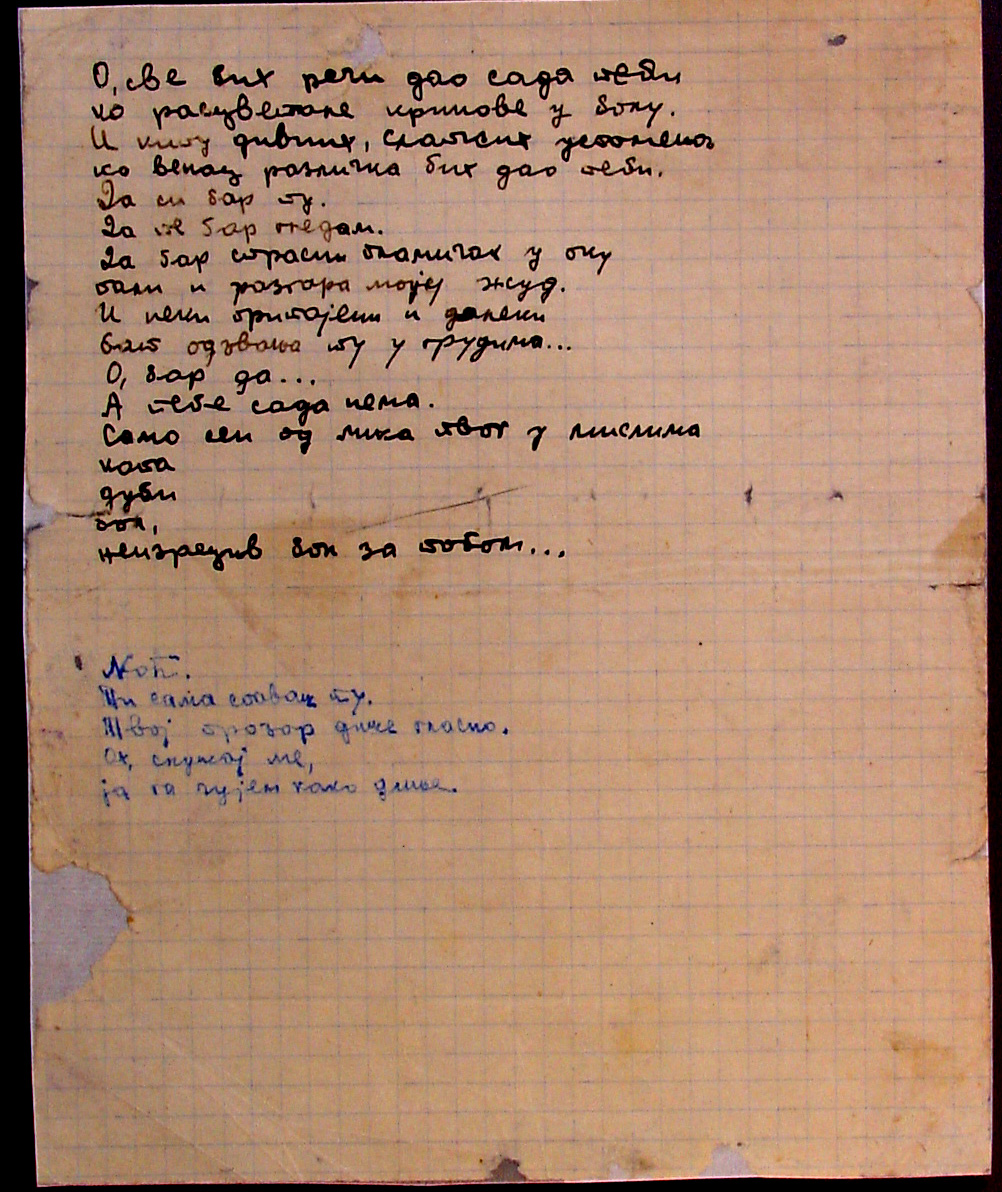 О, све бих речи дао сада теби
ко расцветале кринове у болу.
И киту дивних, слатких успомена
ко венац различка бих дао теби.
Да си бар ту.
Да те бар гледам.
Да бар страсни пламичак у оку
пали и разгара мојеј жуд.
И неки притајени и далеки
бат одзвања ту у грудима...
О, бар да...
А тебе сада нема.
Само сен од лика твог у мислима
копа
дуби
бол,
неизрецив бол за тобом...
Ноћ.
Ти сама спаваш ту.
Твој прозор дише гласно.
Ох, слушај ме,
ја га чујем како дише.